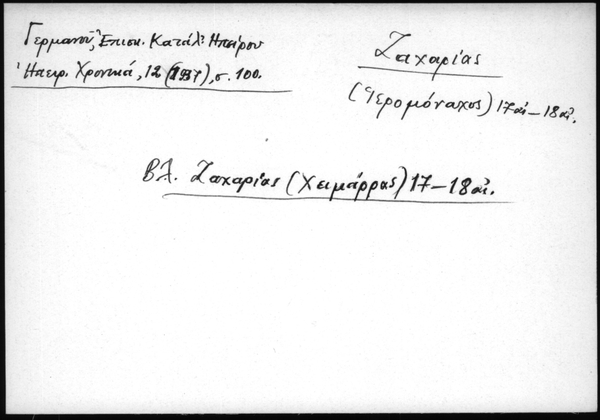 Γερμανοῦ, Ἐπισκ. Κατάλ. Ἠπείρου
Ἠπειρ. Χρονικά, 12 (1937), σ. 100.
Ζαχαρίας
(Ἱερομόναχος) 17 αἰ – 18 αἰ.
Βλ. Ζαχαρίας (Χειμάρρας) 17 – 18 αἰ.